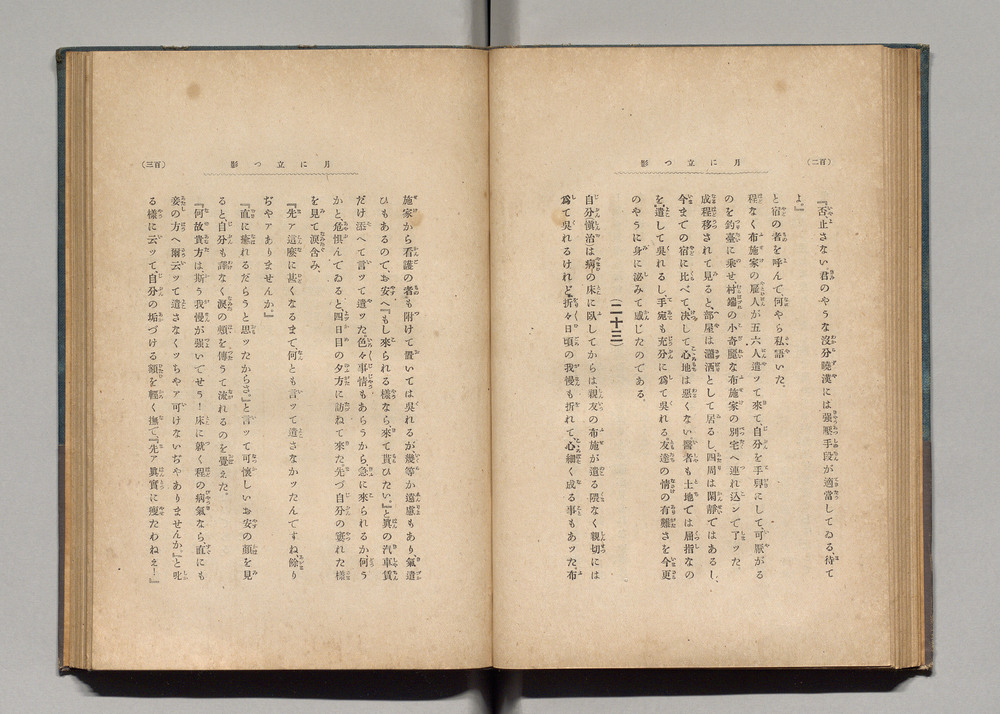 （百二）
月に立つ影
『否、止さない君のやうな沒分曉漢には强壓手段が適當してゐる、待て
よ。』
と宿の者を呼んで、何やら私語いた。
程なく布施家の雇人が五六人遣ッて來て自分を手舁にして、可厭がる
のを釣臺に乘せ、村端の小奇麗な布施家の別宅へ連れ込ンで了ッた。
成程移されて見ると、部屋は瀟洒として居るし、四周は閑靜ではあるし、
今までの宿に比べて、决して心地は惡くない醫者も土地では屈指なの
を遣して吳れるし、手宛も充分に爲て吳れる、友達の情の有難さを今更
のやうに身に泌みて感じたのである。
（二十三）
自分愼治は病の床に臥してからは、親友の布施が遣る隈なく親切には
爲て吳れるけれど、折々日頃の我慢も折れて心細く成る事もあッた、布
（百三）
月に立つ影
施家から看護の者も附けて置いては吳れるが、幾等か遠慮もあり、氣遣
ひもあるので、お安へ『もし來られる樣なら、來て貰ひたい。』と眞の汽車賃
だけ添へて言ッて遣ッた、色々事情もあらうから、急に來られるか、何う
かと、危惧んでゐると、四日目の夕方に訪ねて來た、先づ自分の窶れた樣
を見て淚含み、
『先ア這麽に甚くなるまで、何とも言ッて遣さなかッたんですね、餘り
ぢやアありませんか。』
『直に癒れるだらうと思ッたからさ。』と言ッて可懷しいお安の顏を見
ると、自分も譯なく淚の頰を傳うて流れるのを覺えた。
『何故貴方は斯う我慢が强いでせう！床に就く程の病氣なら、直にも
妾の方へ爾云ッて遣さなくッちやア可けないぢやありませんか。』と叱
る樣に云ッて、自分の垢づける額を輕く撫で『先ア眞實に瘦たわねえ！』